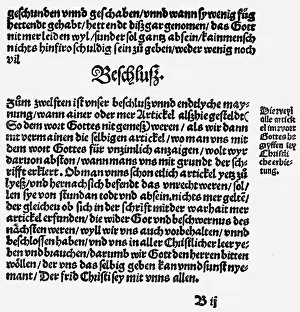 geschunden vnnd geschaben/vnnd wann sy wenig fůg
hettendt gehabt/hettendt diß gar genomen/das Gott
nit mer leiden wyl/sunder sol gantz absein/kain mensch
nichts hinfiro schuldig sein zů geben/weder wenig noch
vil
Beschluß.
Zům zwelften ist vnser beschluß vnnd endtlyche may-
nung/wann ainer oder mer Artickel alßhie gesteldt(
So dem wort Gottes nit gemeß)weren/als wir dann
nit vermainen die selbigen artickel/wo man vns mit
dem wort Gottes für vnzimlich anzaigen/wolt wyr
daruon abston/wann mans vns mit grundt der schrifft
erklert. Ob man vns schon etlich artickel yetz zů
lyeß/vnd hernach sich befendt das vnrecht weren/sol/
len sye von stundan todt vnd absein. nichts mer gelten/
der gleichen ob sich in der schrift mit der warhait mer
artickel erfunden/die wider Got vnd beschwernus des
nächsten weren/wöll wir vns auch vorbehalten/vnnd
beschlossen haben/vnd vns in aller Christlicher leer yeben
vnd brauchen/darumb wir Gott den herren bitten
wöllen/der vns das selbig geben kan vnnd sunst nye-
mant/Der frid Christi sey mit vnns allen.
Die weyl
alle artick
el im wort
Gottes be
gryffen sey
Christli-
che erbie-
tung.
B ij